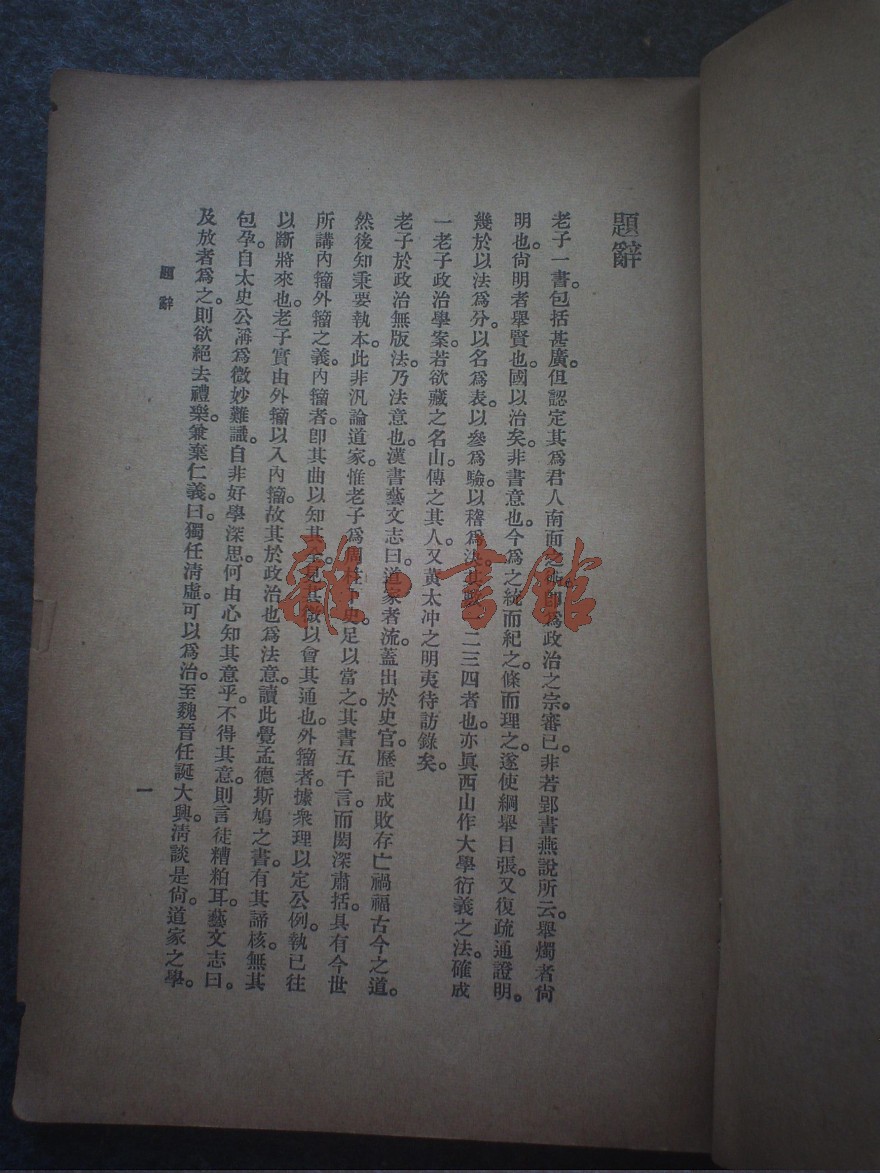 題辭
老子一書。包括甚廣。但認定其爲君人南面之術。卽爲政治之宗。審已。非若郢書燕說所云。舉燭者尙
明也。尙明者舉賢也。國以治矣。非書意也。今爲之統而紀之。條而理之。遂使綱舉目張。又復疏通證明。
幾於以法爲分。以名爲表。以參爲驗。以稽爲決。其數一二三四者也。亦眞西山作大學衍義之法。確成
一老子政治學案。若欲藏之名山傳之其人。又黃太冲之明夷待訪錄矣。
老子於政治無版法。乃法意也。漢書藝文志曰。道家者流。蓋出於史官。歷記成敗存亡禍福古今之道。
然後知秉要執本。此非汎論道家。惟老子爲周柱下史。足以當之。其書五千言。而閎深肅括。具有今世
所講內籀外籀之義。內籀者。卽其曲以知其全。見其微以會其通也。外籀者。據衆理以定公例。執已往
以斷將來也。老子實由外籀以入內籀。故其於政治也爲法意。讀此覺孟德斯鳩之書。有其諦核。無其
包孕。自太史公稱爲微妙難識。自非好學深思。何由心知其意乎。不得其意。則言徒糟粕耳。藝文志曰。
及放者爲之。則欲絕去禮樂。兼棄仁義。曰。獨任淸虛。可以爲治。至魏晉任誕大興。淸談是尙。道家之學。
題辭
一
雜·書館